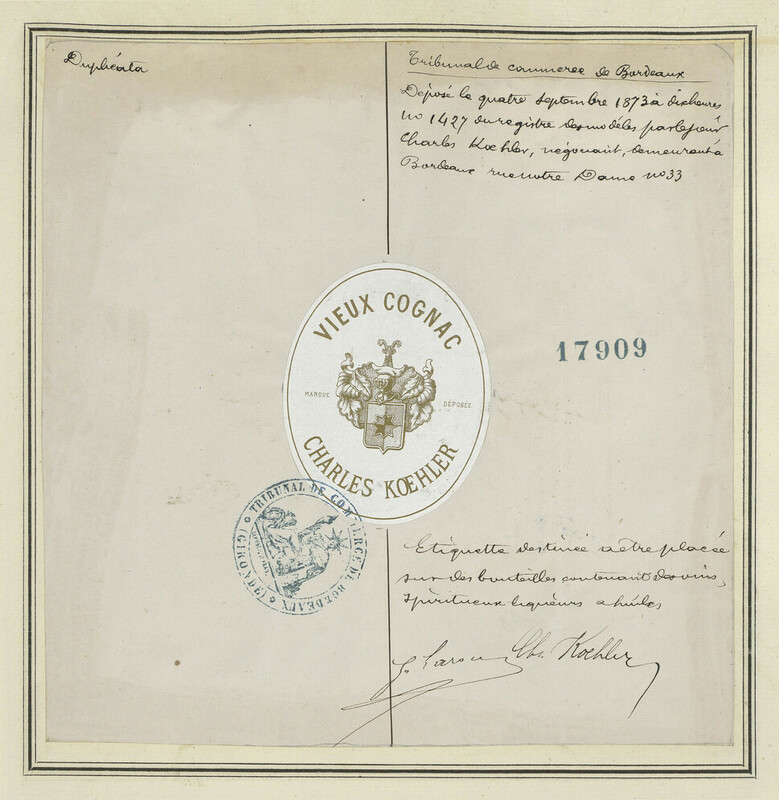 Duplicata
Tribunal de commerce de Bordeaux
Déposé le quatre septembre 1873 à dix heures
no 1427 du registre des modèles par le sieur
Charles Kœhler, négociant, demeurant à
Bordeaux rue notre Dame no 33
VIEUX COGNAC
MARQUE DÉPOSÉE
CHARLES KŒHLER
17909
TRIBUNAL DE COMMERCE DE BORDEAUX
(GIRONDE)
Etiquette destinée à être placée
sur des bouteilles contenant des vins,
spiritueux liqueurs & huiles
Ch. Koehler